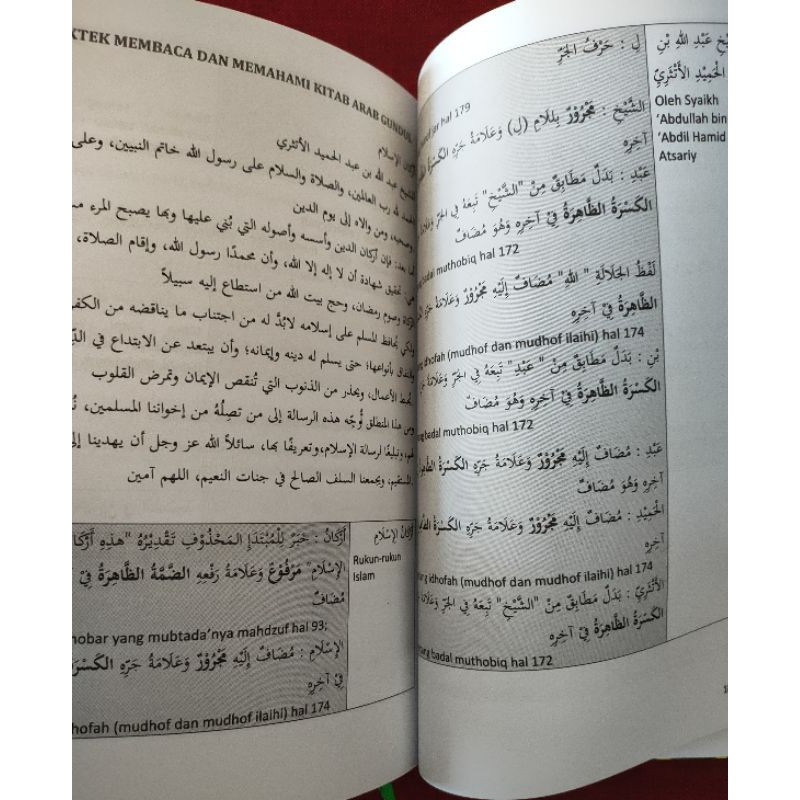 KTEK MEMBACA DAN MEMAHAMI KITAB ARAB GUNDUL
أركان الإسلام
للشيخ عبد الله بن عبد الحميد الأثري
لله رب العالمين، والصلاة والسلام على رسول الله خاتم النبيين، وعلى
وصحبه، ومن والاه إلى يوم الدين
أما بعد: فإن أركان الدين وأسسه وأصوله التي بُني عليها وبها يصبح المرء
هي: تحقيق شهادة أن لا إله إلا الله، وأن محمدًا رسول الله، وإقام الصلاة،
الزكاة وصوم رمضان، وحج بيت الله من استطاع إليه سبيلاً
ولكي يُحافظ المسلم على إسلامه لابُدَّ له من اجتناب ما يناقضه من الكفر
والنفاق بأنواعها؛ حتى يسلم له دينه وإيمانه؛ وأن يبتعد عن الابتداع في
تُحبط الأعمال، ويحذر من الذنوب التي تُنقص الإيمان وتمرض القلوب
ومن هذا المنطلق أُوجّه هذه الرسالة إلى من تصِلُهُ من إخواننا المسلمين،
لهم، وتبليغا لرسالة الإسلام،وتعريفًا بها، سائلاً الله عز وجل أن يهدينا إلى
المستقيم، ويجمعنا السلف الصالح في جنات النعيم، اللهم آمين
أَرْكَانُ الإِسْلَامِ
Rukun-rukun
Islam
أَرْكَانُ : خَبَرٌ لِلْمُبْتَدَإِ المَحْذُوْفِ تَقْدِيْرُهُ "هَذِهِ أَرْكَا
الإِسْلَامِ" مَرْفُوْعٌ وَعَلَامَةُ رَفْعِهِ الضَّمَّةُ الظَّاهِرَةُ فِيْ
مُضَافٌ
hobar yang mubtada'nya mahdzuf hal 93;
الإِسْلَامِ : مُضَافٌ إِلَيْهِ مَجْرُوْرٌ وَعَلَامَةُ جَرِّهِ الكَسْرَةُ
فِيْ آخِرِهِ
hofah (mudhof dan mudhof ilaihi) hal 174
عَبْدِ اللهِ بْنِ
الحَمِيْدِ الأَثَرِيِّ
Oleh Syaikh
'Abdullah bin
'Abdil Hamid
Atsariy
لِ : حَرْفُ الجَرِّ
jar hal 179
الشَّيْخِ : مَجْرُوْرٌ بِللَامِ (لِ) وَعَلَامَةُ جَرِّهِ الكَسْرَةُ
آخِرِهِ
عَبْدِ : بَدَلٌ مَطَابِقٌ مِنْ "الشَّيْخِ" تَبِعَهُ فِي الجَرِّ وَعَلَامَةُ
الكَسْرَةُ الظَّاهِرَةُ فِيْ آخِرِهِ وَهُوَ مُضَافٌ
badal muthobiq hal 172
لَفْظُ الجَلَالَةِ " اللهِ" مُضَافٌ إِلَيْهِ مَجْرُوْرٌ وَعَلَامَةُ جَرِّهِ
الظَّاهِرَةُ فِيْ آخِرِهِ
idhofah (mudhof dan mudhof ilaihi) hal 174
بْنِ : بَدَلٌ مَطَابِقٌ مِنْ " عَبْدِ" تَبِعَهُ فِي الجَرِّ وَعَلَامَةُ
الكَسْرَةُ الظَّاهِرَةُ فِيْ آخِرِهِ وَهُوَ مُضَافٌ
ang badal muthobiq hal 172
عَبْدِ : مُضَافٌ إِلَيْهِ مَجْرُوْرٌ وَعَلَامَةُ جَرِّهِ الكَسْرَةُ
آخِرِهِ وَهُوَ مُضَافٌ
الحَمِيْدِ : مُضَافٌ إِلَيْهِ مَجْرُوْرٌ وَعَلَامَةُ جَرِّهِ الكَسْرَةُ
آخِرِهِ
ang idhofah (mudhof dan mudhof ilaihi) hal 174
الأَثَرِيِّ : بَدَلٌ مَطَابِقٌ مِنْ "الشَّيْخِ" تَبِعَهُ فِي الجَرِّ
الكَسْرَةُ الظَّاهِرَةُ فِيْ آخِرِهِ
ang badal muthobiq hal 172